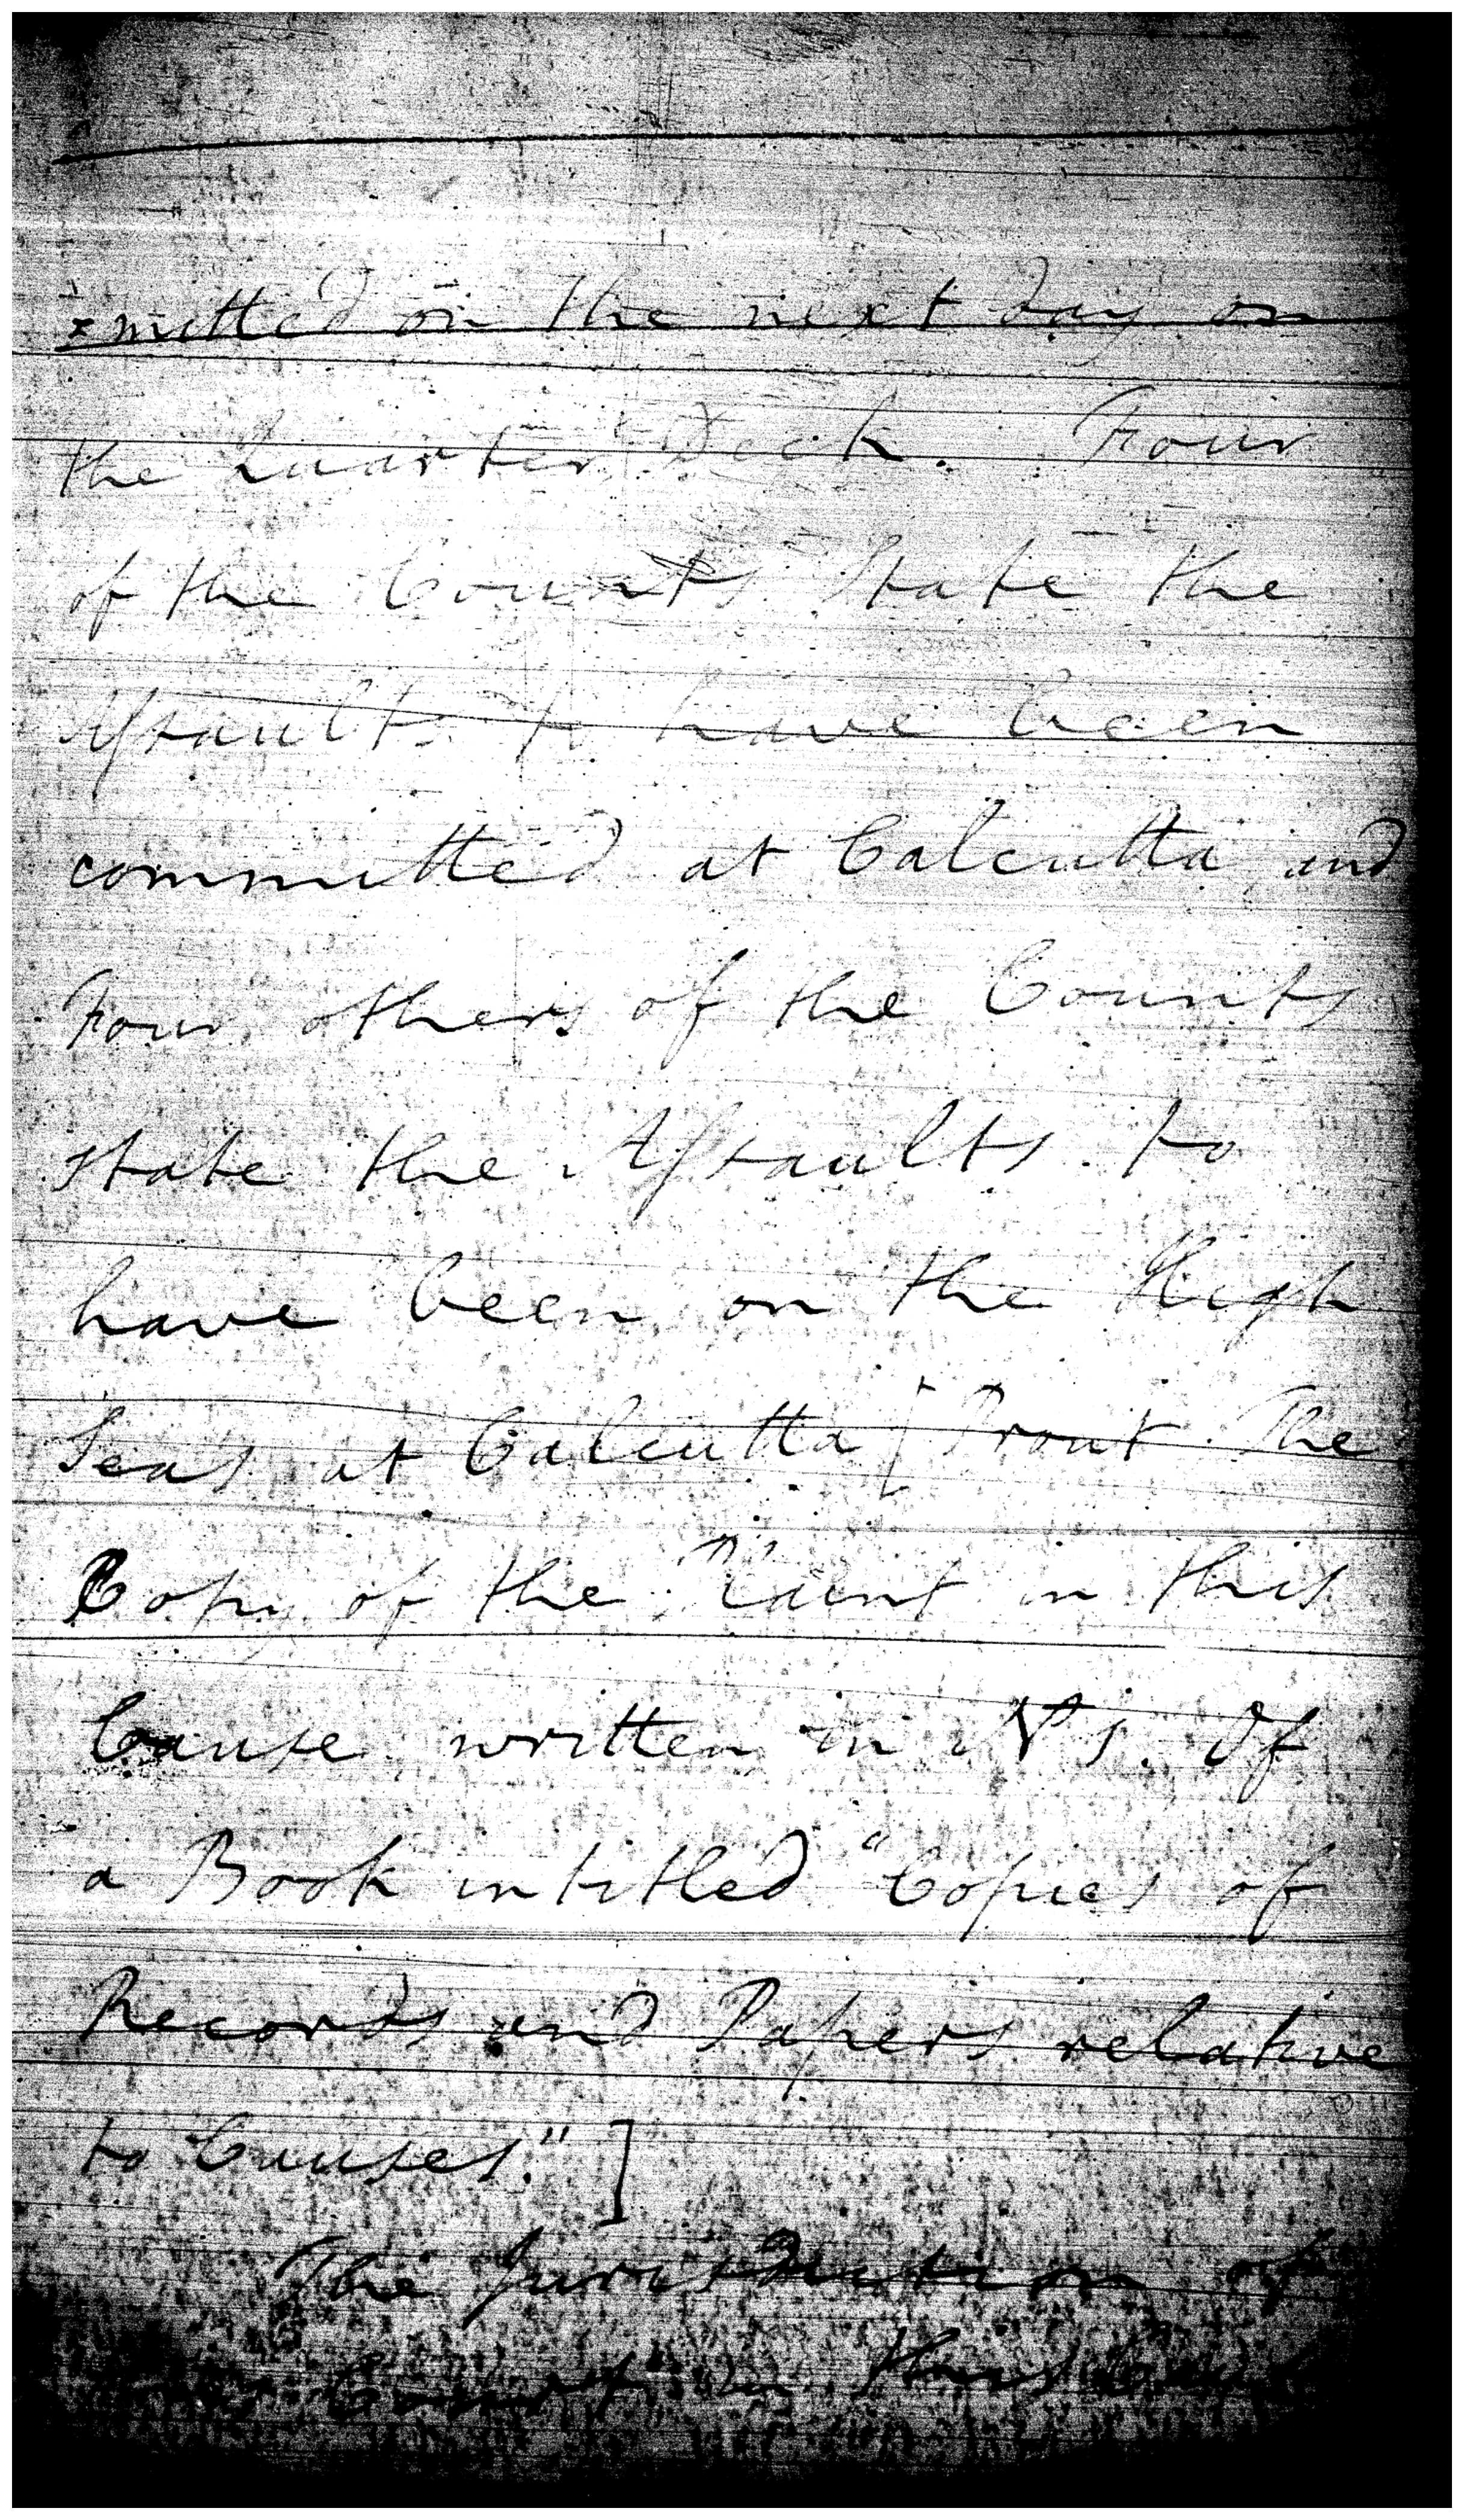 =mitted on the next day on
the Quarter Deck. Four
of the Counts State the
Assaults to have been
committed at Calcutta and
Four others of the Counts
state the Assaults to
have been on the High
Seas at Calcutta [Prout The
Copy of the Plaint in this
Cause written in No 1. Of
a Book intitled "Copies of
Records and Papers relative
to Causes."]
The Jurisdiction of
Court in this